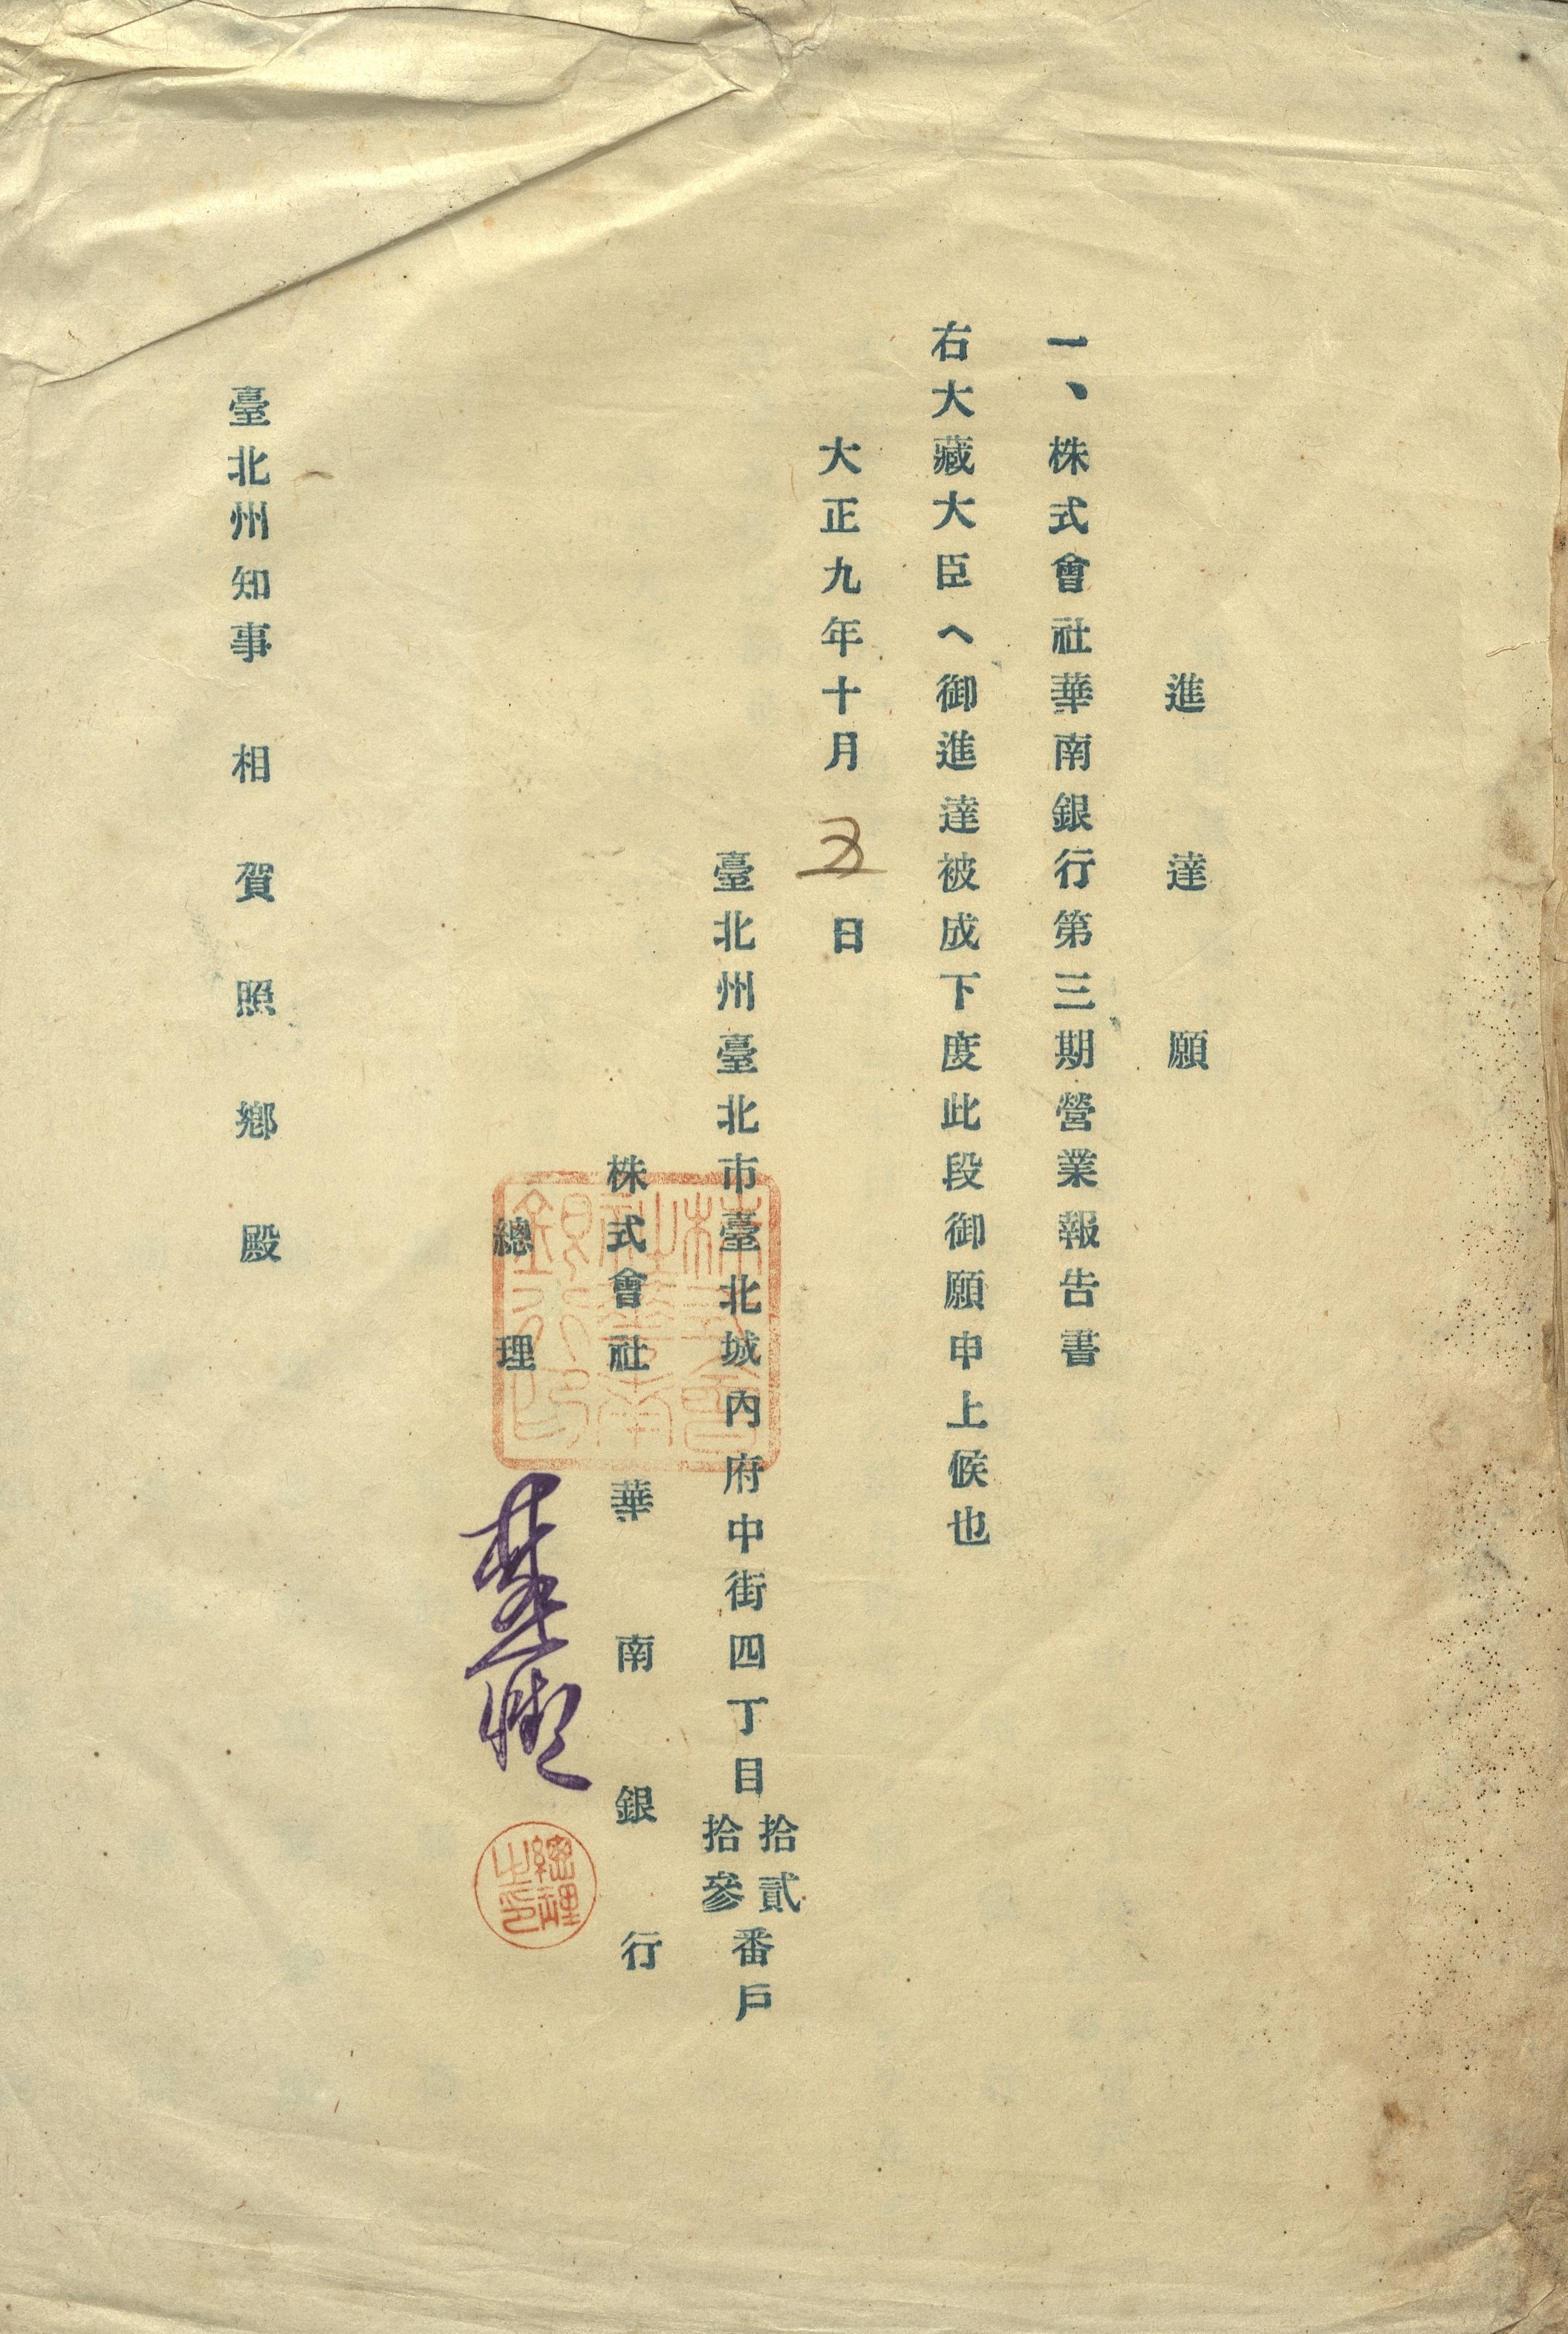 進達願
一、株式會社華南銀行第三期營業報告書
右大藏大臣ヘ御進達被成下度此段御願申上候也
大正九年十月五日
臺北州臺北市臺北城內府中街四丁目拾貳拾參番戶
株式會社華南銀行
總理林熊徵
株式會社華南銀行印
總理之印
臺北州知事相賀照鄉殿